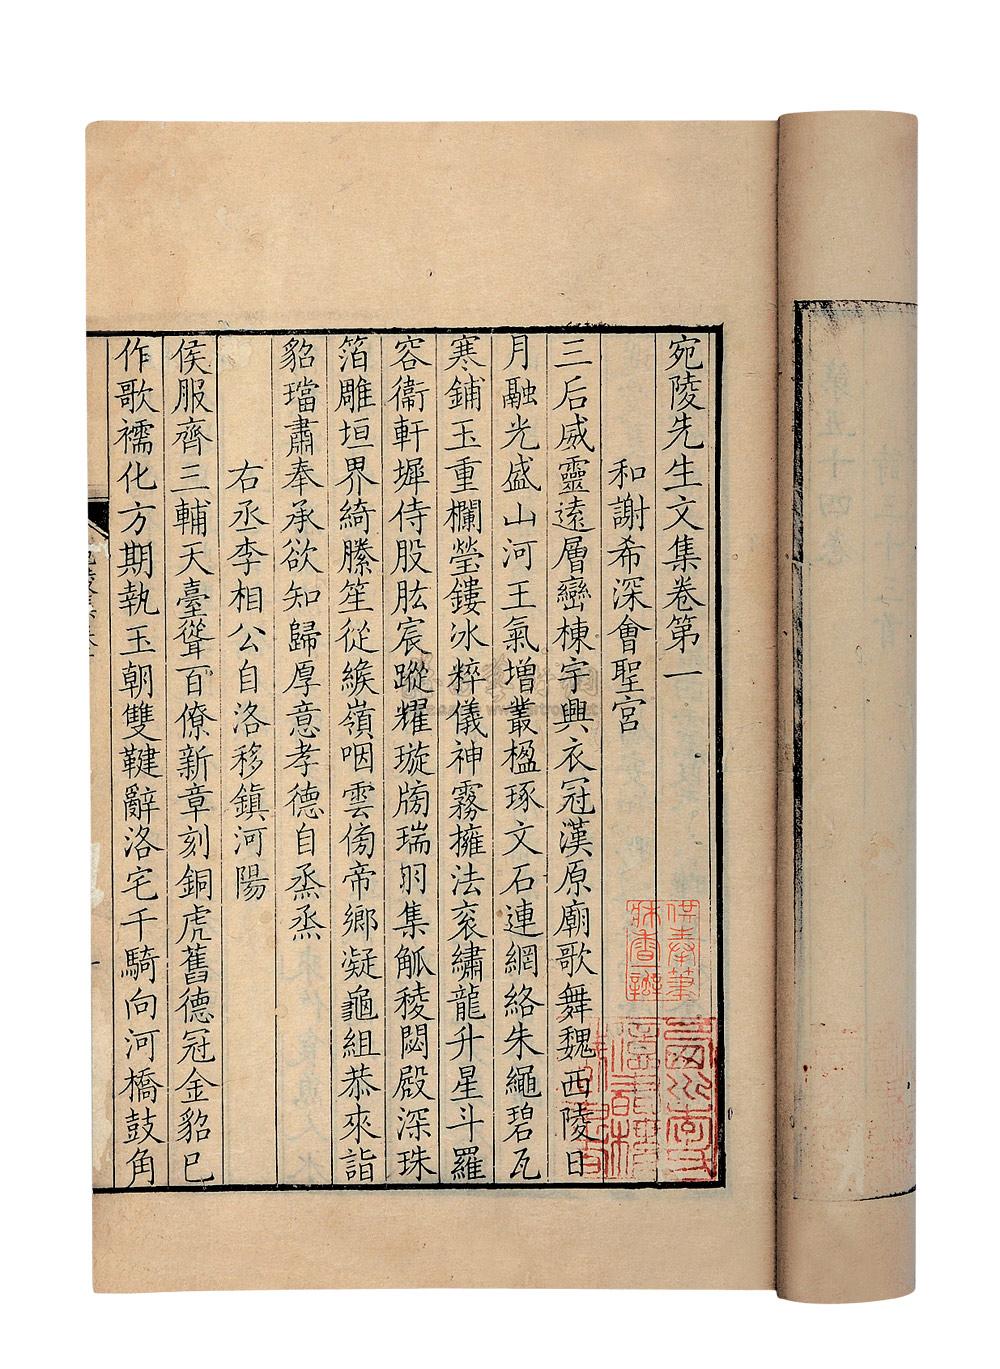 宛陵先生文集卷第一
和謝希深會聖宮
三后威靈遠層巒棟宇興衣冠漢原廟歌舞魏西陵日
月融光盛山河王氣增叢楹琢文石連網絡朱繩碧瓦
寒鋪玉重欄瑩鏤冰粹儀神霧擁法衮繡龍升星斗羅
容衞軒墀侍股肱宸蹤耀璇牓瑞羽集觚稜閟殿深珠
箔雕垣界綺縢笙從緱嶺咽雲傍帝鄉凝龜組恭來詣
貂璫肅奉承欲知歸厚意孝德自烝烝
右丞李相公自洛移鎮河陽
侯服齊三輔天臺聳百僚新章刻銅虎舊德冠金貂巳
作歌襦化方期執玉朝雙鞬辭洛宅千騎向河橋鼓角
第五十四卷